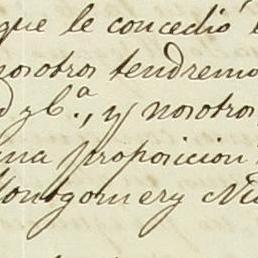 que le concedió
nosotros tendremo
y nosotros
una proposicion
Montgomery